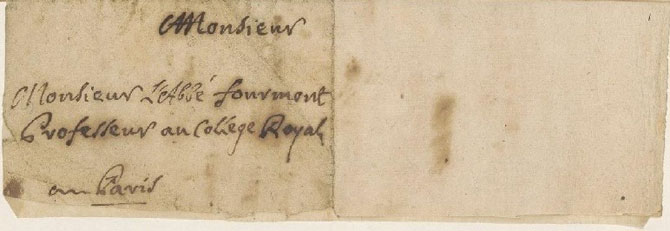 Monsieur
Monsieur L'Abbé fourmont
Professeur au College Royal
Paris